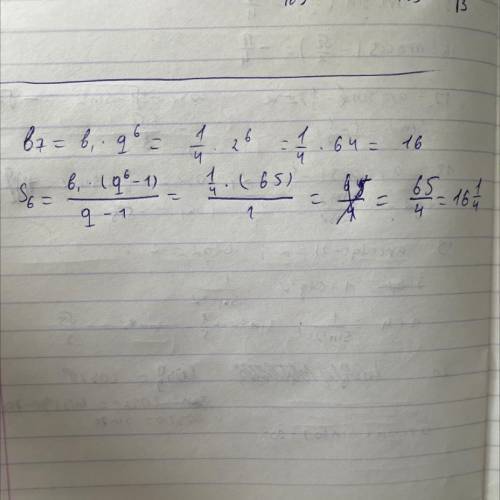 b₇ = b₁ · q⁶ = 1/4 · 2⁶ = 1/4 · 64 = 16
S₆ = b₁ · (q⁶ - 1) / q - 1 = 1/4 · (65) / 1 = = 65/4 = 16 1/4